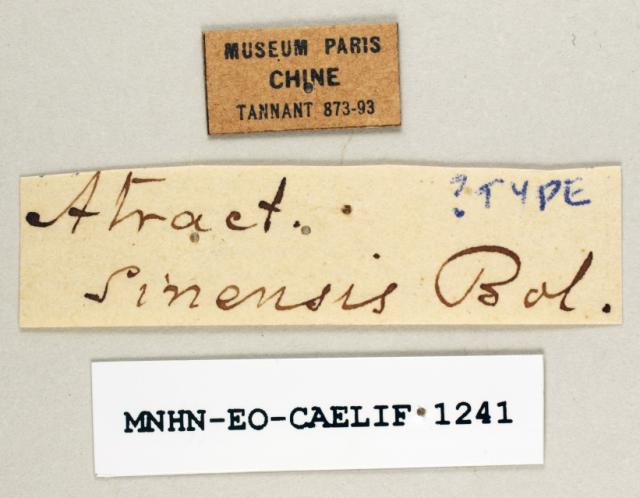 MUSEUM PARIS
CHINE
TANNANT 873-93
Atract. ? TYPE
sinensis Bol.
MNHN-EO-CAELIF 1241